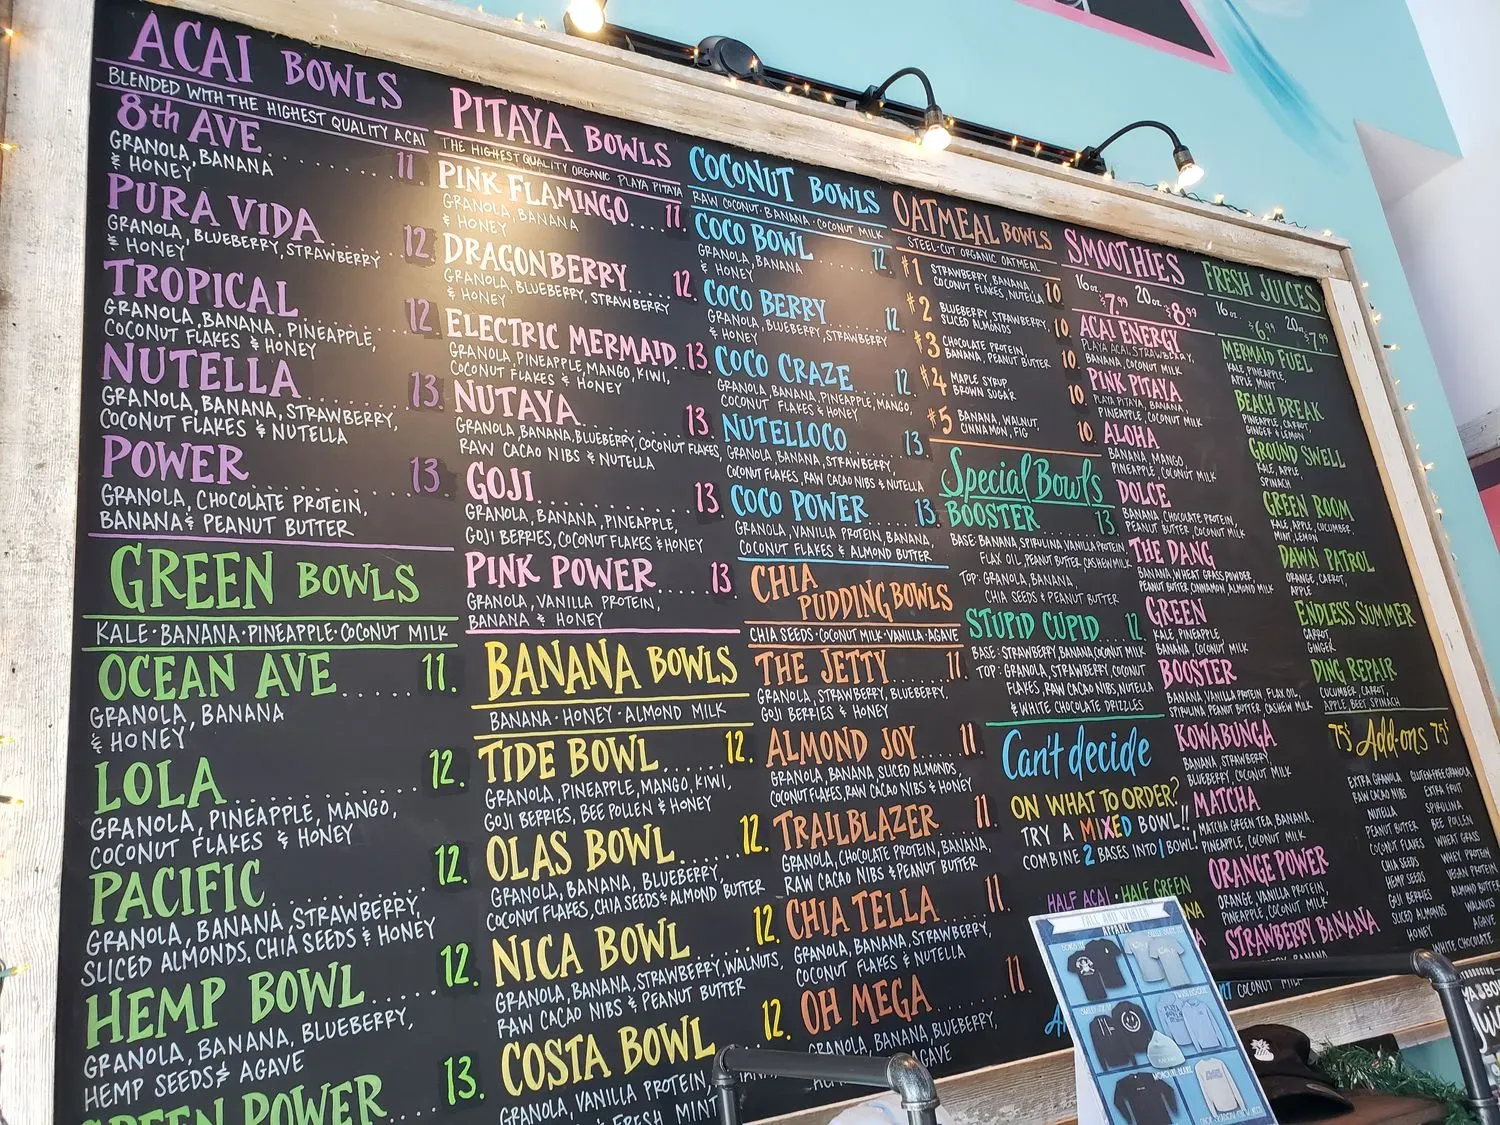 ACAI BOWLS
BLENDED WITH THE HIGHEST QUALITY ACAI
8th AVE 11.
GRANOLA, BANANA
& HONEY
PURA VIDA 12.
GRANOLA, BLUEBERRY, STRAWBERRY
& HONEY
TROPICAL 12.
GRANOLA, BANANA, PINEAPPLE,
COCONUT FLAKES & HONEY
NUTELLA 13.
GRANOLA, BANANA, STRAWBERRY,
COCONUT FLAKES & NUTELLA
POWER 13.
GRANOLA, CHOCOLATE PROTEIN,
BANANA & PEANUT BUTTER
GREEN BOWLS
KALE · BANANA · PINEAPPLE · COCONUT MILK
OCEAN AVE 11.
GRANOLA, BANANA
& HONEY
LOLA 12.
GRANOLA, PINEAPPLE, MANGO,
COCONUT FLAKES & HONEY
PACIFIC 12.
GRANOLA, BANANA, STRAWBERRY,
SLICED ALMONDS, CHIA SEEDS & HONEY
HEMP BOWL 12.
GRANOLA, BANANA, BLUEBERRY,
HEMP SEEDS & AGAVE
GREEN POWER 13.
PITAYA BOWLS
THE HIGHEST QUALITY ORGANIC PLAYA PITAYA
PINK FLAMINGO 11.
GRANOLA, BANANA
& HONEY
DRAGONBERRY 12.
GRANOLA, BLUEBERRY, STRAWBERRY
& HONEY
ELECTRIC MERMAID 13
GRANOLA, PINEAPPLE, MANGO, KIWI,
COCONUT FLAKES & HONEY
NUTAYA 13.
GRANOLA, BANANA, BLUEBERRY, COCONUT FLAKES,
RAW CACAO NIBS & NUTELLA
GOJI 13
GRANOLA, BANANA, PINEAPPLE,
GOJI BERRIES, COCONUT FLAKES & HONEY
PINK POWER 13
GRANOLA, VANILLA PROTEIN,
BANANA & HONEY
BANANA BOWLS
BANANA · HONEY · ALMOND MILK
TIDE BOWL 12.
GRANOLA, PINEAPPLE, MANGO, KIWI,
GOJI BERRIES, BEE POLLEN & HONEY
OLAS BOWL 12.
GRANOLA, BANANA, BLUEBERRY,
COCONUT FLAKES, CHIA SEEDS & ALMOND BUTTER
NICA BOWL 12.
GRANOLA, BANANA, STRAWBERRY, WALNUTS,
RAW CACAO NIBS & PEANUT BUTTER
COSTA BOWL 12.
GRANOLA, VANILLA PROTEIN,
FRESH MINT
COCONUT BOWLS
RAW COCONUT · BANANA · COCONUT MILK
COCO BOWL 12.
GRANOLA, BANANA
& HONEY
COCO BERRY 12.
GRANOLA, BLUEBERRY, STRAWBERRY
& HONEY
COCO CRAZE 12
GRANOLA, BANANA, PINEAPPLE, MANGO,
COCONUT FLAKES & HONEY
NUTELLOCO 13.
GRANOLA, BANANA, STRAWBERRY,
COCONUT FLAKES, RAW CACAO NIBS & NUTELLA
COCO POWER 13.
GRANOLA, VANILLA PROTEIN, BANANA,
COCONUT FLAKES & ALMOND BUTTER
CHIA
PUDDING BOWLS
CHIA SEEDS · COCONUT MILK · VANILLA · AGAVE
THE JETTY 11.
GRANOLA, STRAWBERRY, BLUEBERRY,
GOJI BERRIES & HONEY
ALMOND JOY 11.
GRANOLA, BANANA, SLICED ALMONDS,
COCONUT FLAKES, RAW CACAO NIBS & HONEY
TRAILBLAZER 11
GRANOLA, CHOCOLATE PROTEIN, BANANA,
RAW CACAO NIBS & PEANUT BUTTER
CHIA TELLA 11
GRANOLA, BANANA, STRAWBERRY,
COCONUT FLAKES & NUTELLA
OH MEGA 11
GRANOLA, BANANA, BLUEBERRY,
AGAVE
OATMEAL BOWLS
STEEL-CUT ORGANIC OATMEAL
#1 STRAWBERRY, BANANA, 10
COCONUT FLAKES, NUTELLA
#2 BLUEBERRY, STRAWBERRY, 10
SLICED ALMONDS
#3 CHOCOLATE PROTEIN, 10
BANANA, PEANUT BUTTER
#4 MAPLE SYRUP 10
BROWN SUGAR
#5 BANANA, WALNUT, 10.
CINNAMON, FIG
Special Bowls
BOOSTER 13
BASE: BANANA, SPIRULINA, VANILLA PROTEIN
FLAX OIL, PEANUT BUTTER, CASHEW MILK
TOP: GRANOLA, BANANA,
CHIA SEEDS & PEANUT BUTTER
STUPID CUPID 12.
BASE: STRAWBERRY, BANANA, COCONUT MILK
TOP: GRANOLA, STRAWBERRY, COCONUT
FLAKES, RAW CACAO NIBS, NUTELLA
& WHITE CHOCOLATE DRIZZLES
Can't decide
ON WHAT TO ORDER?
TRY A MIXED BOWL!!
COMBINE 2 BASES INTO 1 BOWL!
HALF ACAI · HALF GREEN
SMOOTHIES
16 oz. $7.99 20 oz. $8.99
ACAI ENERGY
PLAYA ACAI, STRAWBERRY,
BANANA, COCONUT MILK
PINK PITAYA
PLAYA PITAYA, BANANA,
PINEAPPLE, COCONUT MILK
ALOHA
BANANA MANGO
PINEAPPLE, COCONUT MILK
DOLCE
BANANA, CHOCOLATE PROTEIN,
PEANUT BUTTER, COCONUT MILK
THE DANG
BANANA WHEAT GRASS POWDER,
PEANUT BUTTER, CINNAMON, ALMOND MILK
GREEN
KALE, PINEAPPLE,
BANANA, COCONUT MILK
BOOSTER
BANANA VANILLA PROTEIN, FLAX OIL,
SPIRULINA, PEANUT BUTTER, CASHEW MILK
KOWABUNGA
BANANA, STRAWBERRY,
BLUEBERRY, COCONUT MILK
MATCHA
MATCHA GREEN TEA, BANANA,
PINEAPPLE, COCONUT MILK
ORANGE POWER
ORANGE VANILLA PROTEIN,
PINEAPPLE, COCONUT MILK
STRAWBERRY BANANA
COCONUT MILK
FRESH JUICES
16 oz. $6.99 20 oz. $7.99
MERMAID FUEL
KALE, PINEAPPLE,
APPLE, MINT
BEACH BREAK
PINEAPPLE, CARROT,
GINGER & LEMON
GROUND SWELL
KALE, APPLE
SPINACH
GREEN ROOM
KALE, APPLE, CUCUMBER,
MINT, LEMON
DAWN PATROL
ORANGE, CARROT,
APPLE
ENDLESS SUMMER
CARROT,
GINGER
DING REPAIR
CUCUMBER, CARROT,
APPLE, BEET, SPINACH
75¢ Add-ons 75¢
EXTRA GRANOLA
RAW CACAO NIBS
NUTELLA
PEANUT BUTTER
COCONUT FLAKES
CHIA SEEDS
HEMP SEEDS
GOJI BERRIES
SLICED ALMONDS
HONEY
GLUTEN FREE GRANOLA
EXTRA FRUIT
SPIRULINA
BEE POLLEN
WHEAT GRASS
WHEY PROTEIN
VEGAN PROTEIN
ALMOND BUTTER
WALNUTS
AGAVE
WHITE CHOCOLATE
FALL AND WINTER
APPAREL